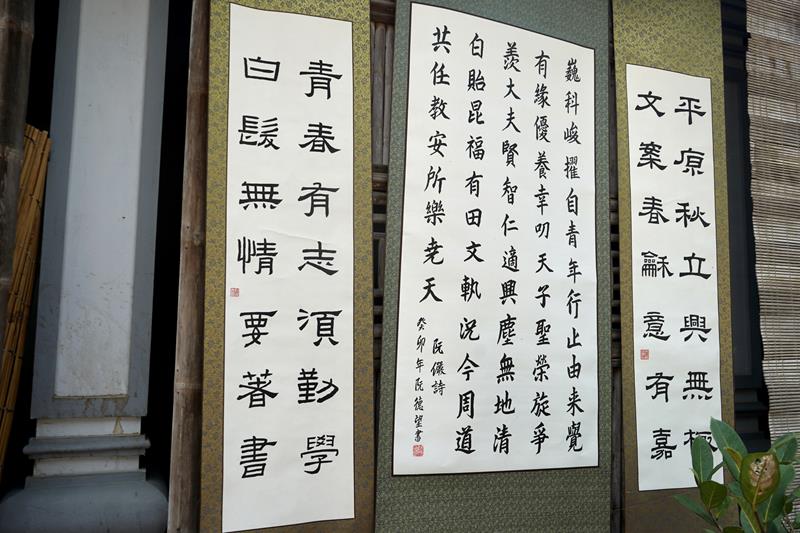 平原秋立興無極
文案春龢意有嘉
巍科峻擢自青年行止由來覺
有緣優養幸叨天子聖榮旋爭
羨大夫賢智仁適興塵無地清
白貽昆福有田文執況今周道
共任教安所樂堯天
阮儼詩
癸卯年阮德望書
青春有志須勤學
白髮無情要著書